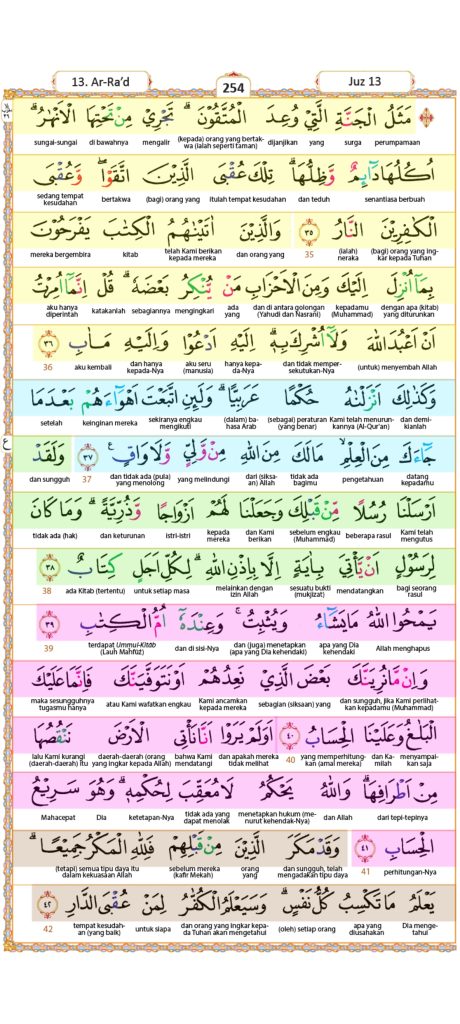 13. Ar-Ra’d
254
Juz 13
مَثَلُ الْجَنَّةِ الَّتِيْ وُعِدَ الْمُتَّقُوْنَۗ تَجْرِيْ مِنْ تَحْتِهَا الْاَنْهٰرُۗ
perumpamaan surga yang dijanjikan (kepada) orang yang bertakwa (ialah seperti taman) mengalir di bawahnya sungai-sungai
اُكُلُهَا دَاۤىِٕمٌ وَّظِلُّهَاۗ تِلْكَ عُقْبَى الَّذِيْنَ اتَّقَوْاۖ وَّعُقْبَى
senantiasa berbuah dan teduh itulah tempat kesudahan (bagi) orang yang bertakwa sedang tempat kesudahan
الْكٰفِرِيْنَ النَّارُ ۝٣٥ وَالَّذِيْنَ اٰتَيْنٰهُمُ الْكِتٰبَ يَفْرَحُوْنَ
(bagi) orang yang ingkar kepada Tuhan (ialah) neraka 35 dan orang yang telah Kami berikan kepada mereka kitab mereka bergembira
بِمَآ اُنْزِلَ اِلَيْكَ وَمِنَ الْاَحْزَابِ مَنْ يُّنْكِرُ بَعْضَهٗۗ قُلْ اِنَّمَآ اُمِرْتُ
dengan apa (kitab) yang diturunkan kepadamu (Muhammad) dan di antara golongan (Yahudi dan Nasrani) ada yang mengingkari sebagiannya katakanlah aku hanya diperintah
اَنْ اَعْبُدَ اللّٰهَ وَلَآ اُشْرِكَ بِهٖۗ اِلَيْهِ اَدْعُوْا وَاِلَيْهِ مَاٰبِ ۝٣٦
(untuk) menyembah Allah dan tidak mempersekutukan-Nya hanya kepada-Nya aku seru (manusia) dan hanya kepada-Nya aku kembali 36
وَكَذٰلِكَ اَنْزَلْنٰهُ حُكْمًا عَرَبِيًّاۗ وَلَىِٕنِ اتَّبَعْتَ اَهْوَاۤءَهُمْ بَعْدَمَا
dan demikianlah Kami telah menurunkannya (Al-Qur’an) (sebagai) peraturan (yang benar) (dalam) bahasa Arab sekiranya engkau mengikuti keinginan mereka setelah
جَاۤءَكَ مِنَ الْعِلْمِۙ مَا لَكَ مِنَ اللّٰهِ مِنْ وَّلِيٍّ وَّلَا وَاقٍ ۝٣٧ وَلَقَدْ
datang kepadamu pengetahuan tidak ada bagimu dari (siksaan) Allah yang melindungi dan tidak ada (pula) yang menolong 37 dan sungguh
اَرْسَلْنَا رُسُلًا مِّنْ قَبْلِكَ وَجَعَلْنَا لَهُمْ اَزْوَاجًا وَّذُرِّيَّةًۗ وَمَا كَانَ
Kami telah mengutus beberapa rasul sebelum engkau (Muhammad) dan Kami berikan kepada mereka istri-istri dan keturunan tidak ada (hak)
لِرَسُوْلٍ اَنْ يَّأْتِيَ بِاٰيَةٍ اِلَّا بِاِذْنِ اللّٰهِۗ لِكُلِّ اَجَلٍ كِتَابٌ ۝٣٨
bagi seorang rasul mendatangkan sesuatu bukti (mukjizat) melainkan dengan izin Allah untuk setiap masa ada Kitab (tertentu) 38
يَمْحُوا اللّٰهُ مَا يَشَاۤءُ وَيُثْبِتُۚ وَعِنْدَهٗٓ اُمُّ الْكِتٰبِ ۝٣٩
Allah menghapus apa yang Dia kehendaki dan (juga) menetapkan (apa yang Dia kehendaki) dan di sisi-Nya terdapat Ummul-Kitāb (Lauh Mahfūẓ) 39
وَاِنْ مَّا نُرِيَنَّكَ بَعْضَ الَّذِيْ نَعِدُهُمْ اَوْ نَتَوَفَّيَنَّكَ فَاِنَّمَا عَلَيْكَ
dan sungguh, jika Kami perlihatkan kepadamu (Muhammad) sebagian (siksaan) yang Kami ancamkan kepada mereka atau Kami wafatkan engkau maka sesungguhnya tugasmu hanya
الْبَلٰغُ وَعَلَيْنَا الْحِسَابُ ۝٤٠ اَوَلَمْ يَرَوْا اَنَّا نَأْتِى الْاَرْضَ نَنْقُصُهَا
menyampaikan saja dan Kamilah yang memperhitungkan (amal mereka) 40 dan apakah mereka tidak melihat bahwa Kami mendatangi daerah-daerah (orang yang ingkar kepada Allah) lalu Kami kurangi (daerah-daerah) itu
مِنْ اَطْرَافِهَاۗ وَاللّٰهُ يَحْكُمُ لَا مُعَقِّبَ لِحُكْمِهٖۗ وَهُوَ سَرِيْعُ
dari tepi-tepinya dan Allah menetapkan hukum (menurut kehendak-Nya) tidak ada yang dapat menolak ketetapan-Nya Dia Mahacepat
الْحِسَابِ ۝٤١ وَقَدْ مَكَرَ الَّذِيْنَ مِنْ قَبْلِهِمْ فَلِلّٰهِ الْمَكْرُ جَمِيْعًاۗ
perhitungan-Nya 41 dan sungguh, telah mengadakan tipu daya orang yang sebelum mereka (kafir Mekah) (tetapi) semua tipu daya itu dalam kekuasaan Allah
يَعْلَمُ مَا تَكْسِبُ كُلُّ نَفْسٍۗ وَسَيَعْلَمُ الْكُفّٰرُ لِمَنْ عُقْبَى الدَّارِ ۝٤٢
Dia mengetahui apa yang diusahakan (oleh) setiap orang dan orang yang ingkar kepada Tuhan akan mengetahui untuk siapa tempat kesudahan (yang baik) 42
ع